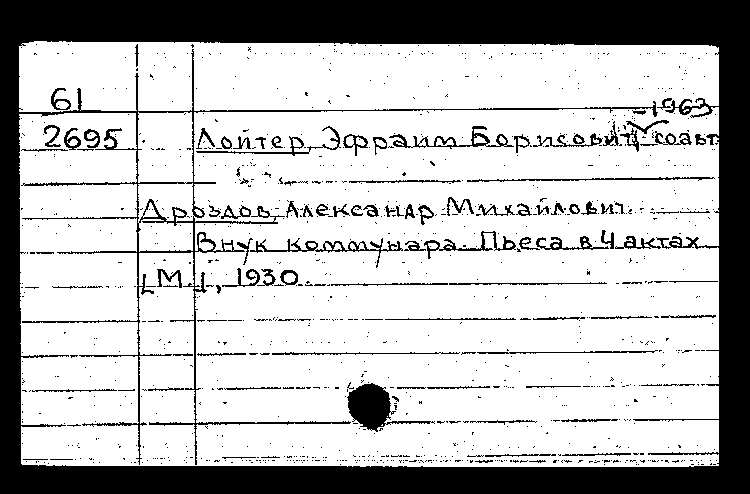 61
-1963
2695 Лойтер, Эфраим Борисович, соавт
Дроздов, Александр Михайлович.
Внук коммунара. Пьеса в 4 актах
[М.], 1930.